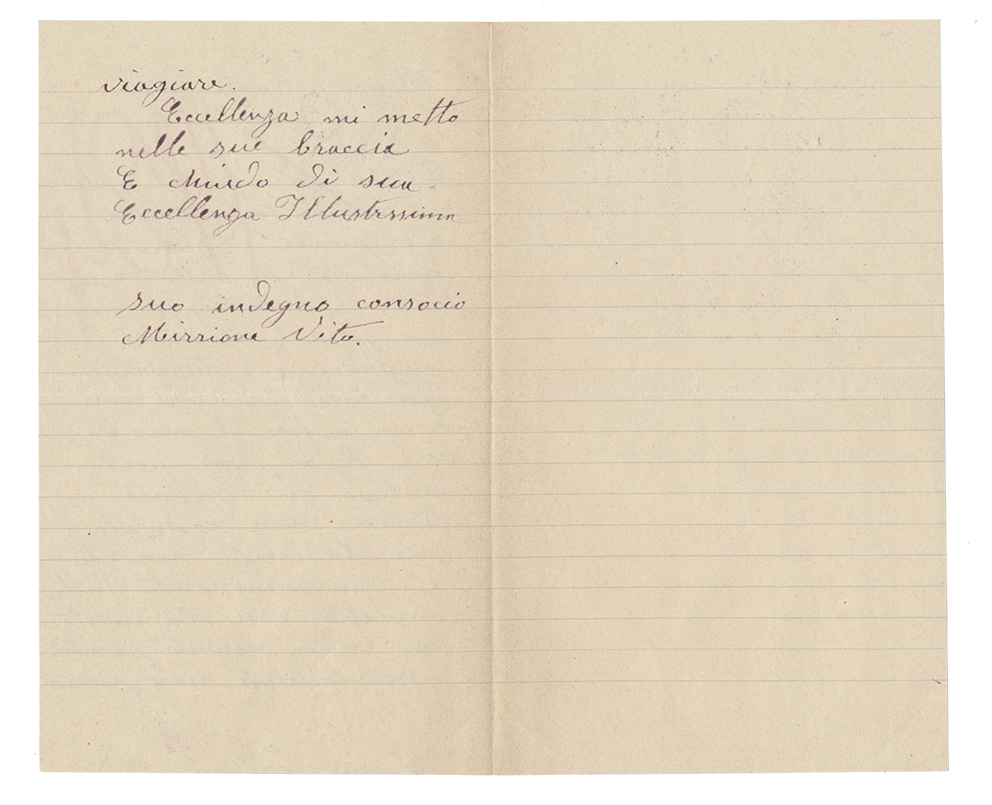 viagiare.
Eccellenza mi metto
nelle sue braccia
E chiudo di sua
Eccellenza Illustrssima
suo indegno consocio
Missione Vito.